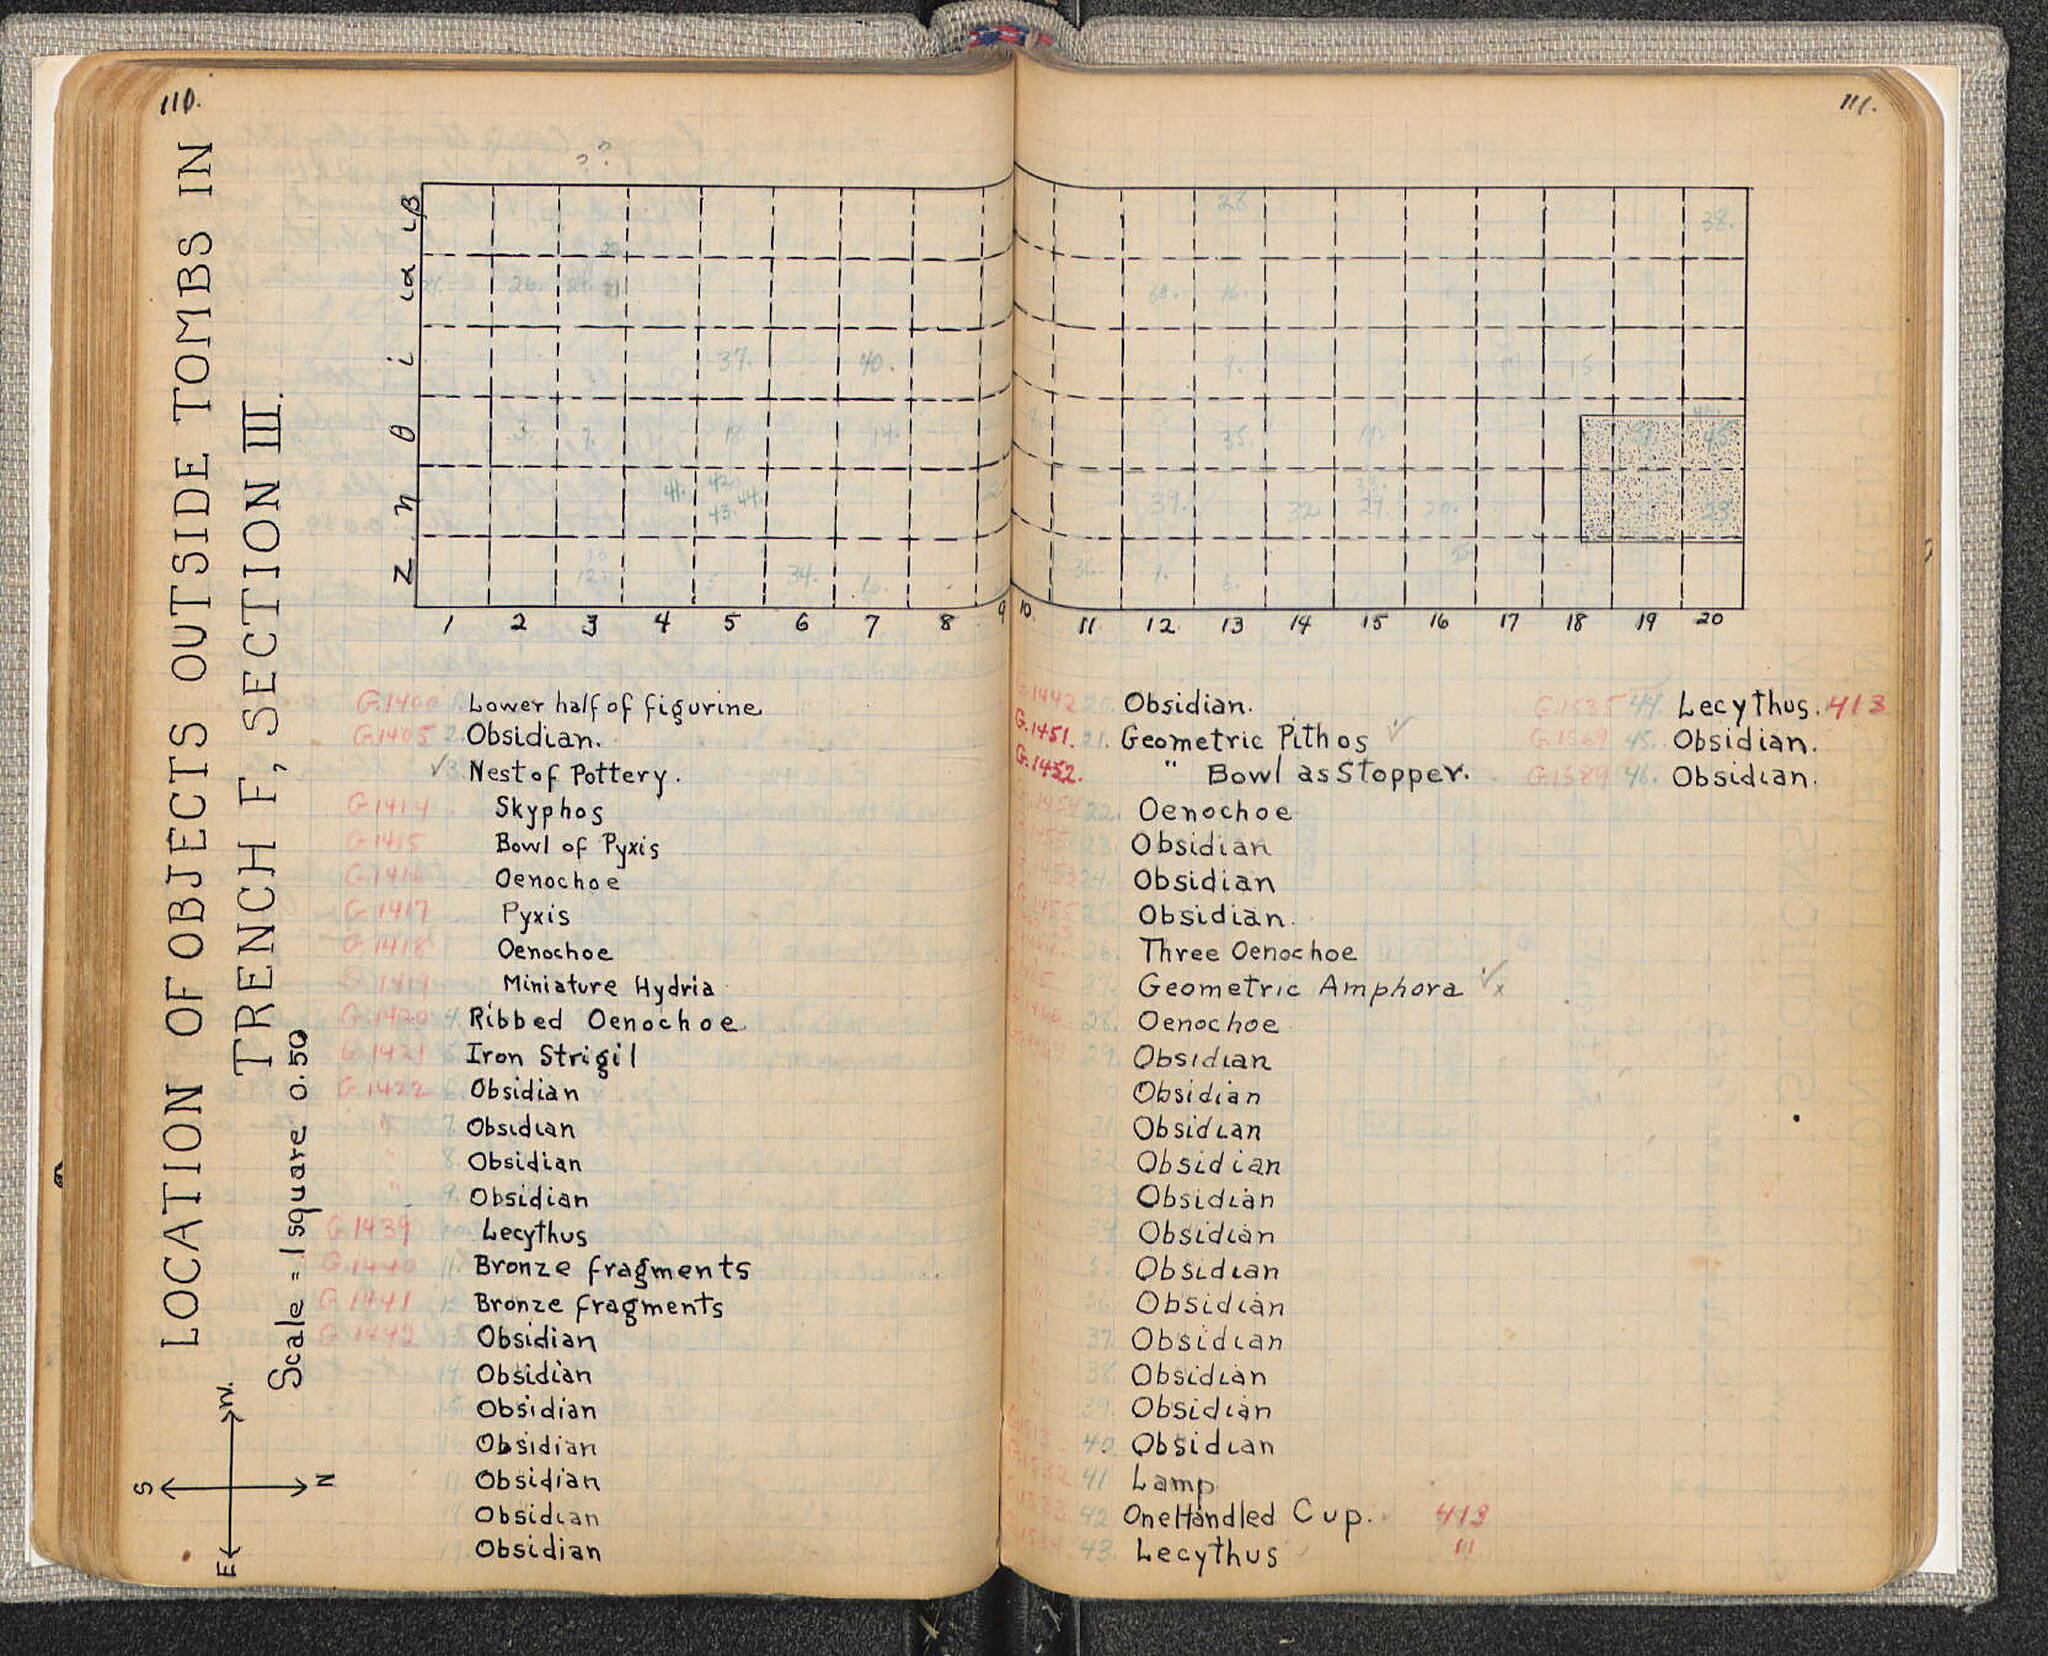 110.
LOCATION OF OBJECTS OUTSIDE TOMBS IN
TRENCH F, SECTION III.
Scale = 1 square 0.50
W.
S N
E
? ?
ιβ
ια
ι
θ
η
Z
37. 40.
3. 7. 18. 14.
41. 42. 44.
43.
12. 5. 34.
1 2 3 4 5 6 7 8 9
G.1400 1. Lower half of figurine
G.1405 2. Obsidian.
√ 3. Nest of Pottery.
G.1414 Skyphos
G.1415 Bowl of Pyxis
G.1416 Oenochoe
G.1417 Pyxis
G.1418 Oenochoe
G.1419 Miniature Hydria
G.1420 4. Ribbed Oenochoe
G.1421 5. Iron Strigil
G.1422 6. Obsidian
" 7. Obsidian
" 8. Obsidian
" 9. Obsidian
G.1439 10. Lecythus
G.1440 11. Bronze fragments
G.1441 12. Bronze fragments
G.1442 13. Obsidian
14. Obsidian
15. Obsidian
16. Obsidian
17. Obsidian
Obsidian
Obsidian
111.
28 38.
16.
15
35.
45
39. 32 27. 20. 23
36. 1. 6.
10. 11 12 13 14 15 16 17 18 19 20
G.1442 20. Obsidian.
G.1451. 21. Geometric Pithos √
G.1452. " Bowl as Stopper.
G.1454 22. Oenochoe
23. Obsidian
24. Obsidian
G.1455 25. Obsidian.
26. Three Oenochoe
27. Geometric Amphora √ x
28. Oenochoe
29. Obsidian
Obsidian
31 Obsidian
32 Obsidian
33 Obsidian
34 Obsidian
Obsidian
36. Obsidian
37. Obsidian
38. Obsidian
39. Obsidian
40. Obsidian
G.1532 41 Lamp
42 One Handled Cup. 413
43. Lecythus "'
G.1535 44. Lecythus. 413
G.1569 45. Obsidian.
G.1589 46. Obsidian.